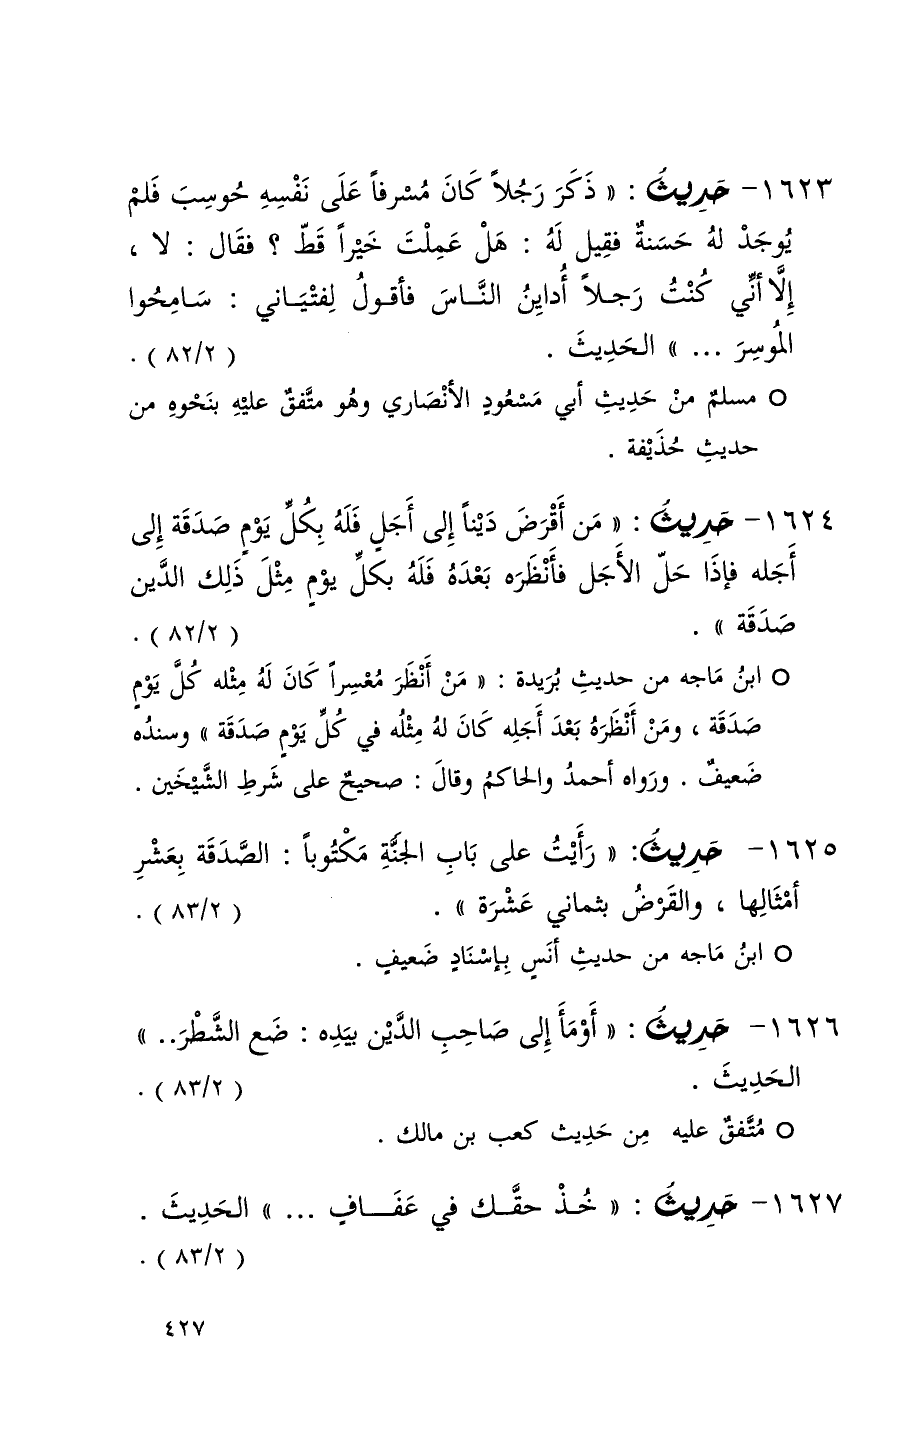 ١٦٢٣- حَدِيثُ : « ذَكَرَ رَجُلاً كَانَ مُسْرِفاً عَلَى نَفْسِهِ حُوسِبَ فَلمْ
يُوجَدْ لهُ حَسَنةٌ فقِيل لَهُ : هَلْ عَمِلْتَ خَيْراً قَطّ ؟ فقَال : لا ،
إِلَّا أنِّي كُنْتُ رَجـلاً أُدايِنُ النَّـاسَ فأقـولُ لِفتْيَـاني : سَـامِحُوا
المُوسِرَ ... » الـحَدِيثَ . ( ٨٢/٢ ) .
○ مسلمٌ منْ حَدِيثِ أبي مَسْعُودٍ الأنْصَاري وهُو متَّفقٌ عليْهِ بنَحْوهِ من
حديثِ حُذَيْفة .
١٦٢٤- حَدِيثُ : « مَن أَقْرَضَ دَيْناً إلى أَجَلٍ فَلَهُ بِكُلِّ يَوْمٍ صَدَقَة إلى
أَجَله فإذَا حَلّ الأَجَل فأَنْظَرَه بَعْدَهُ فَلَهُ بكلِّ يوْمٍ مِثْلَ ذَلِك الدَّين
صَدَقَة » . ( ٨٢/٢ ) .
○ ابنُ مَاجه من حديثِ بُرَيدة : « مَنْ أَنْظَرَ مُعْسِراً كَانَ لَهُ مِثْله كُلَّ يَوْمٍ
صَدَقَة ، ومَنْ أَنْظَرَهُ بَعْدَ أَجَلِه كَانَ لهُ مِثْلُه في كُلِّ يَوْمٍ صَدَقَة » وسندُه
ضَعيفٌ . ورَواه أحمدُ والحاكمُ وقالَ : صحيحٌ على شَرطِ الشَّيْخَين .
١٦٢٥- حَدِيثُ: « رَأَيْتُ على بَابِ الجَنَّةِ مَكْتُوباً : الصَّدَقَة بِعَشْرِ
أمْثَالِها ، والقَرْضُ بثماني عَشْرَة » . ( ٨٣/٢ ) .
○ ابنُ مَاجه من حديثِ أنَسٍ بِإسْنَادٍ ضَعيفٍ .
١٦٢٦- حَدِيثُ : « أَوْمَأَ إلى صَاحِبِ الدَّيْن بيَدِه : ضَع الشَّطْرَ.. »
الـحَدِيثَ . ( ٨٣/٢ ) .
○ مُتَّفقٌ عليه مِن حَدِيث كعب بن مالك .
١٦٢٧- حَدِيثُ : « خُـذْ حقَّـك في عَفَـــافٍ ... » الـحَدِيثَ .
( ٨٣/٢ ) .
٤٢٧